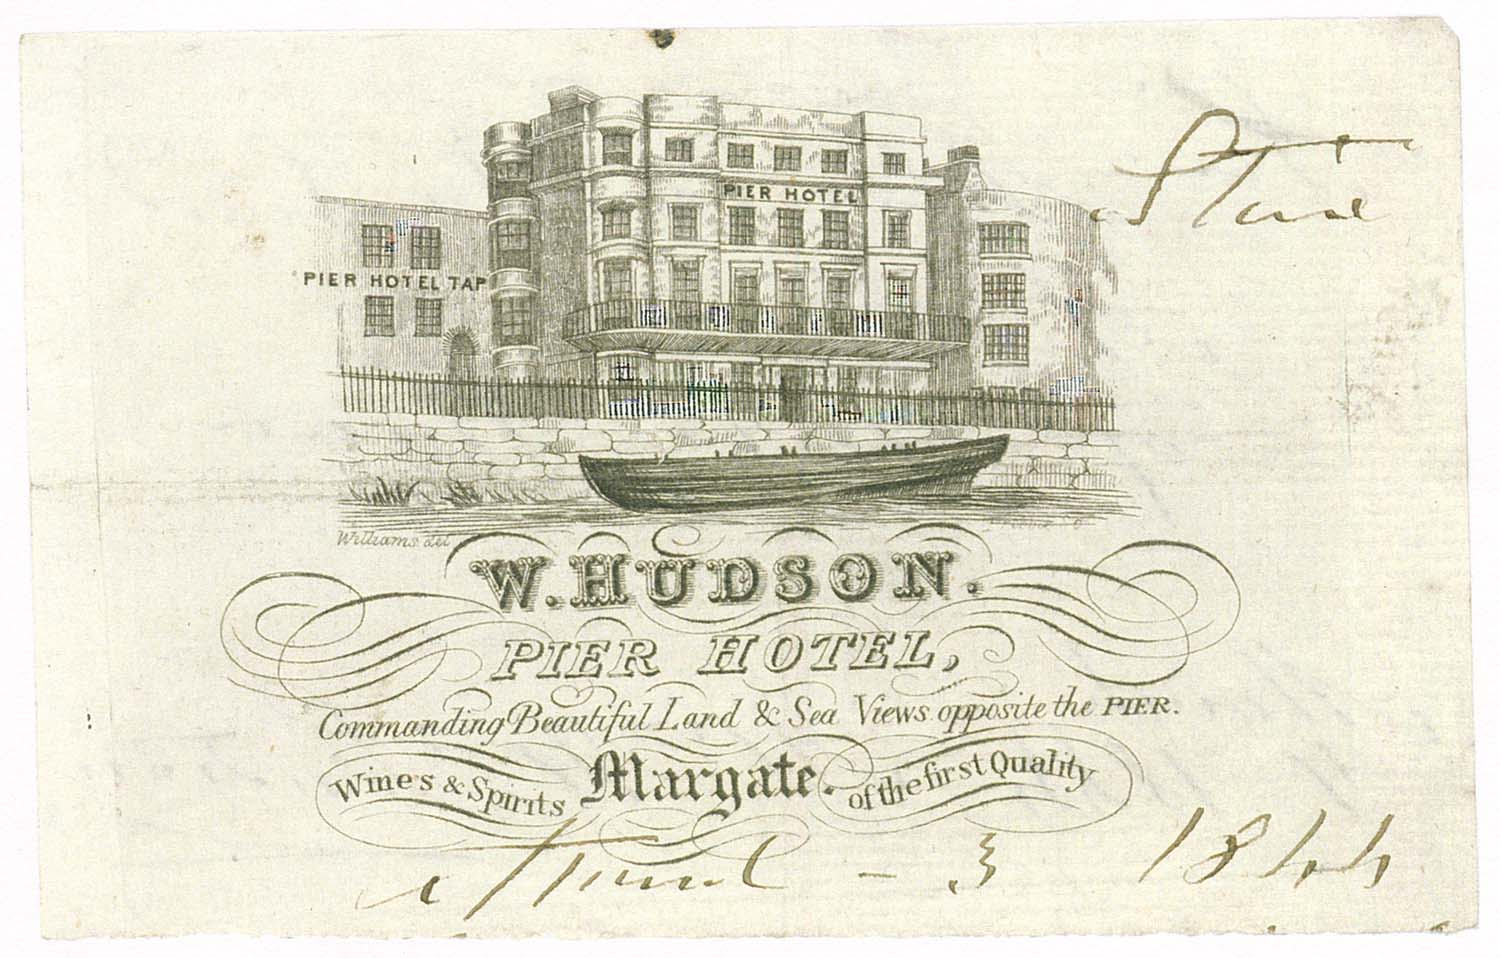 PIER HOTEL
PIER HOTEL TAP
Williams del
W. HUDSON.
PIER HOTEL,
Commanding Beautiful Land & Sea Views opposite the PIER.
Wines & Spirits Margate. of the first Quality
- 3 1844